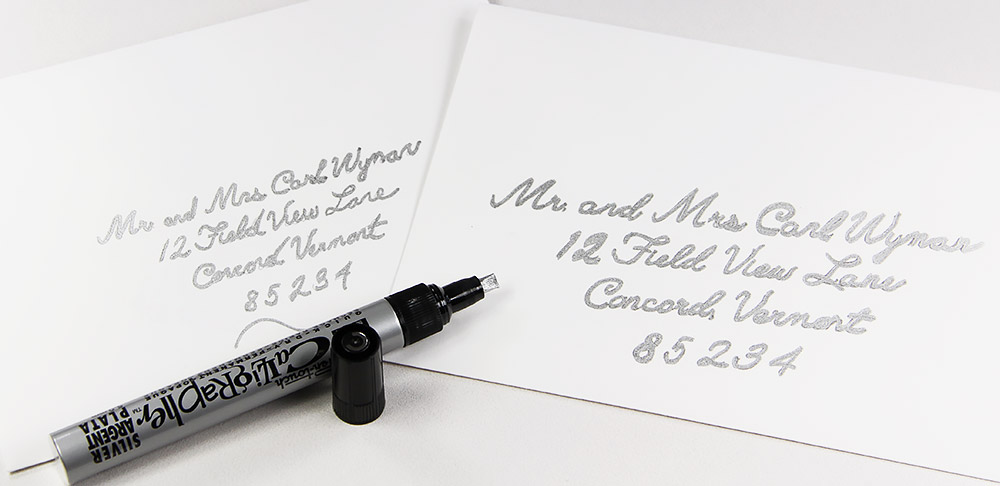 Mr. and Mrs Carl Wyman
12 Field View Lane
Concord Vermont
85234
Mr. and Mrs Carl Wyman
12 Field View Lane
Concord, Vermont
85234
Pen-touch
CaLLigRapheR™
SILVER
ARGENT
PLATA